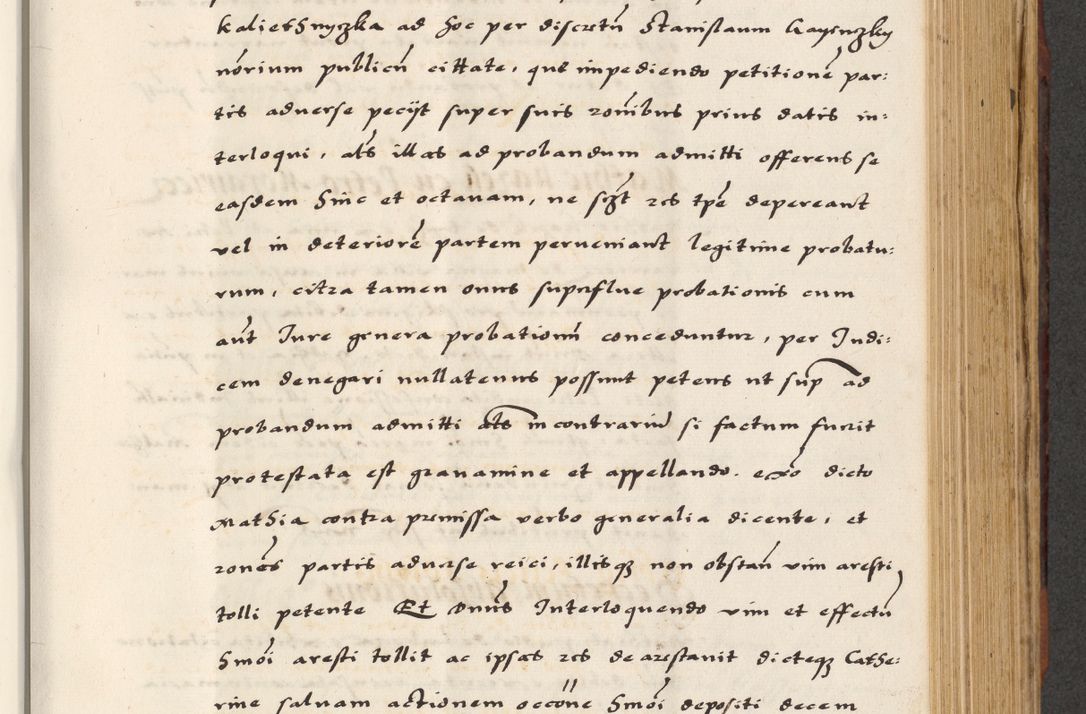 kaliethnyczka ad hoc per discretū Stanislaum Gaysnczky
nōrium publicū cittate, que impediendo petitionē par:
tis adverse peciit super suis rōnibus prius datis in:
terloqui, als illas ad probandum admitti offerens se
easdem hinc et octavam, ne scżt res tpē depereant
vel in deteriorē partem perveniant legitime probatu:
rum, citra tamen onus supnflue probationis cum
aūt Iure genera probationū conceduntur, per Iudi:
cem denegari nullatenus possunt petens ut sup ad
probandum admitti als in contrariū si factum fuerit
protestata est gravamine et appellando. exō dicto
Mathia contra premissa verbo generalia dicente, et
rones partis adverse reici, illisqȝ non obstan̄ vim aresti
tolli petente Et Dnus Interloquendo vim et effectū
hmōi aresti tollit ac ipsas res de arestavit dicteqȝ Cathe:
rine salvam actionem occōne hmōi depositi decem